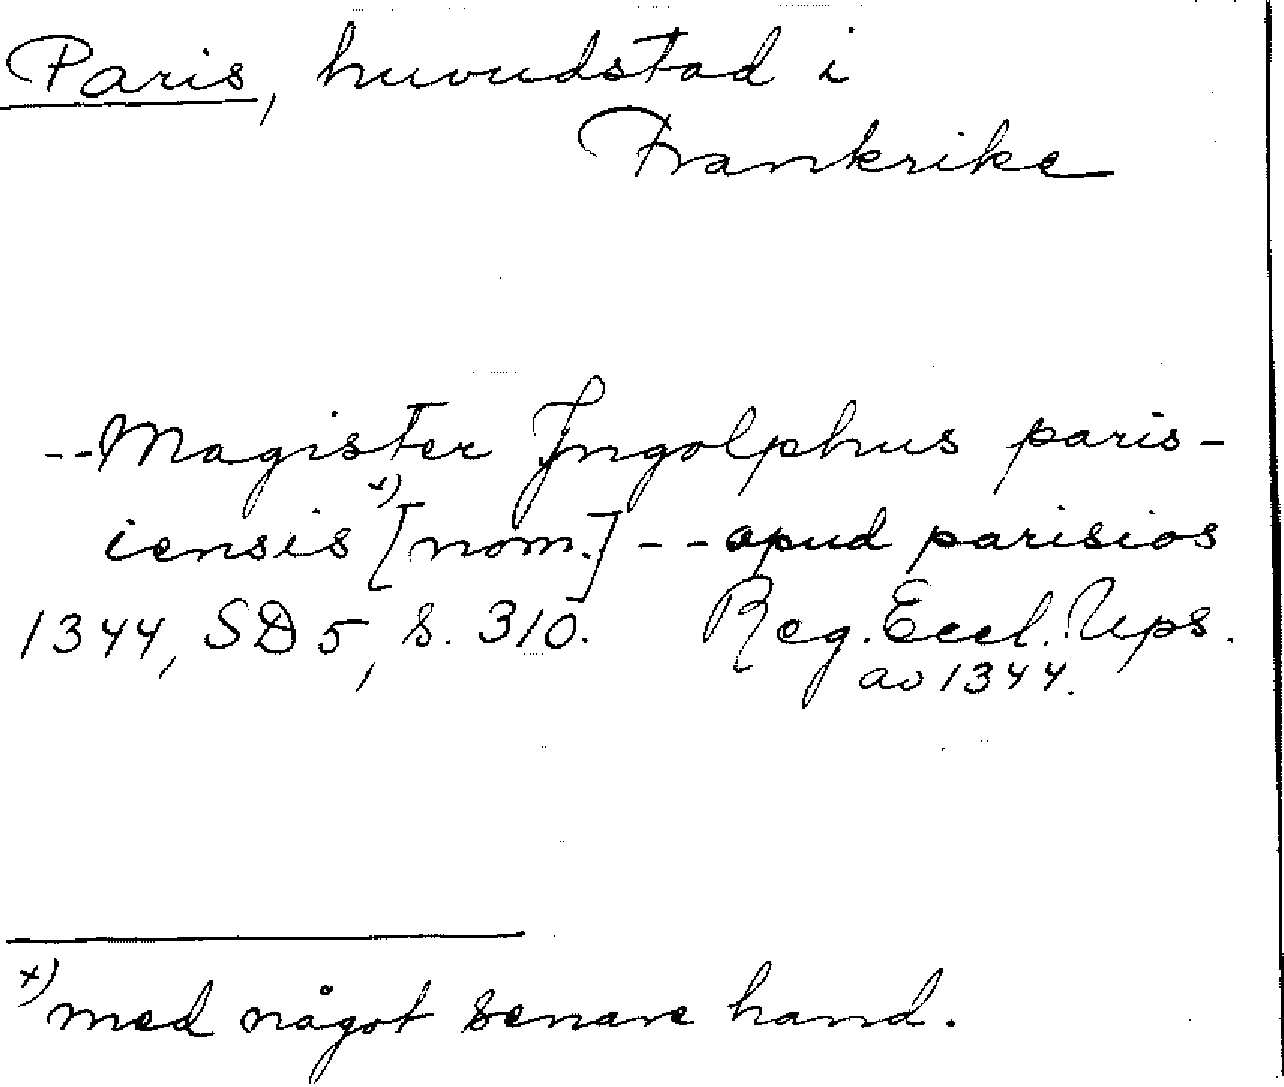 Paris, huvudstad i
Frankrike
--Magister Jngolphus paris-
iensis x) [nom.] -- apud parisios
1344, SD 5, s. 310. Reg. Eccl. Ups.
av 1344.
x) med något senare hand.